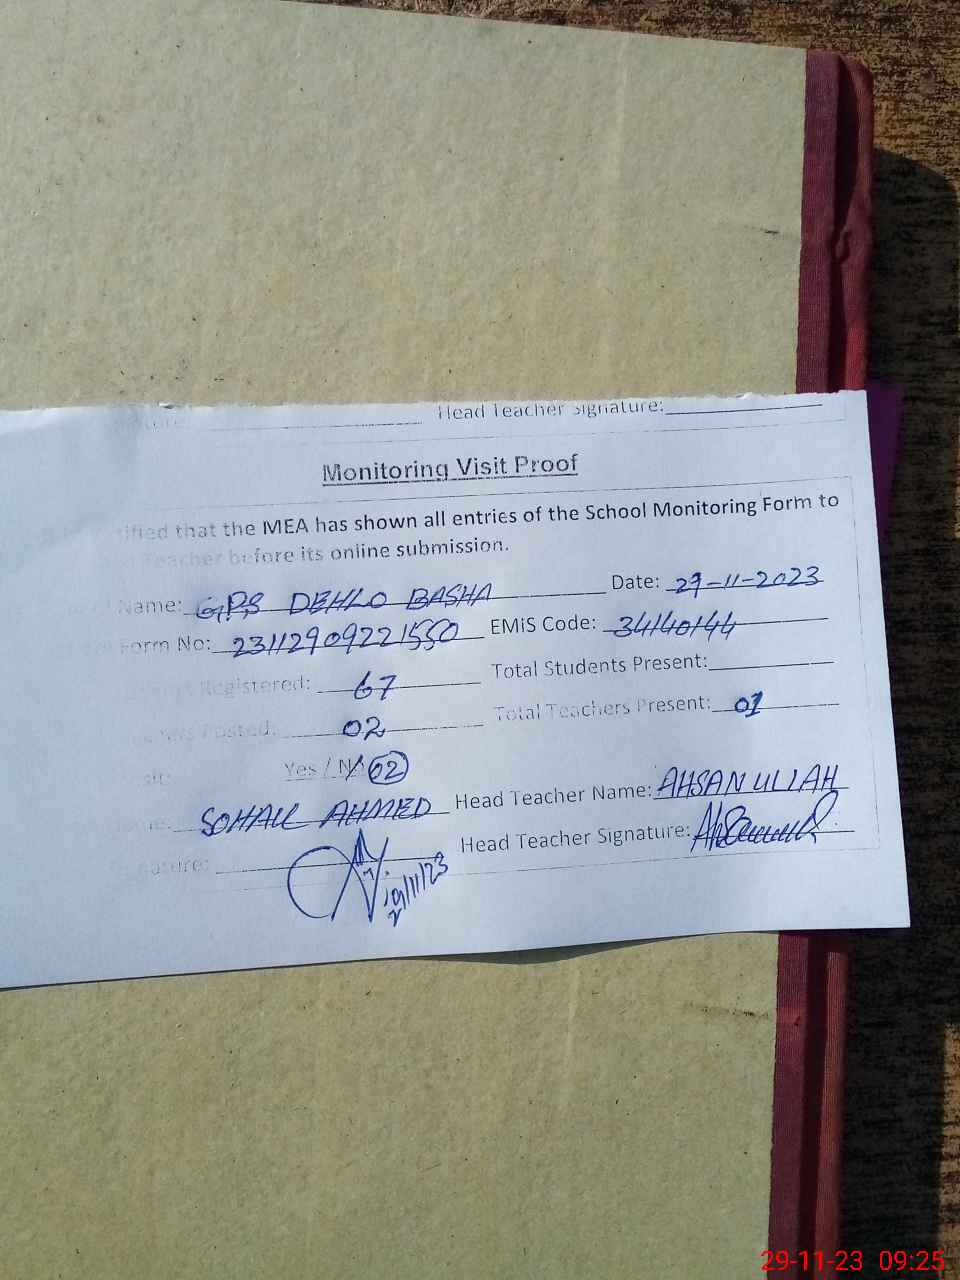 Head Teacher Signature:
Monitoring Visit Proof
tified that the MEA has shown all entries of the School Monitoring Form to
Teacher before its online submission.
Name: GPS DEHLO BASHA Date: 29-11-2023
Form No: 23112909221550 EMiS Code: 34140144
Registered: 67 Total Students Present:
Posted: 02 Total Teachers Present: 01
Yes / No 02
SOHAIL AHMED Head Teacher Name: AHSAN ULLAH
nature: Head Teacher Signature:
29/11/23
29-11-23 09:25